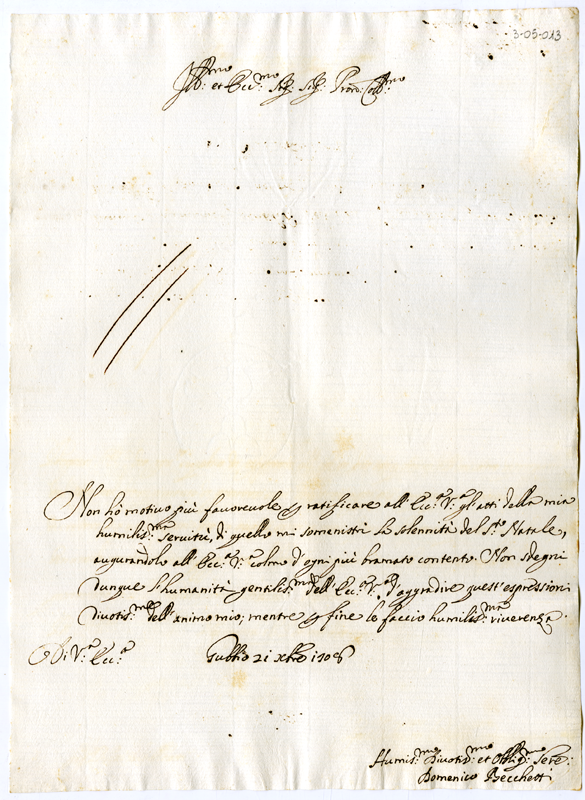 3-05-013
Ill:mo et Ecc:mo Sig: Sig: Pron: Coll:mo
Non hò motivo più favorevole p ratificare all' Ecc:a V:a gl'atti della mia
humilis:ma servitù, di quello mi somanistri la solennità del S:to Natale,
augurandolo all' Ecc:a V:a colmo d'ogni più bramato contento. Non sdegni
dunque l'humanità gentilis:ma dell' Ecc:a V:a d'aggradire quest'espressioni
divotis:me dell' animo mio, mentre p fine le faccio humilis:ma riverenza.
Di V:a Ecc:a Gubbio 21 xbre 1708
Humis:mo Divotis:mo et Obblig:mo Sere:
Domenico Becchetti